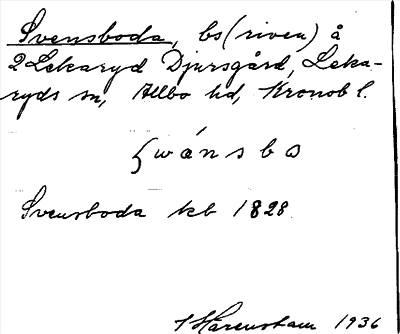 Svensboda, bs (riven) å
2 Lekaryd Djursgård, Leka-
ryds sn, Allbo hd, Kronob l.
ʃwánsbo
Svensboda kb 1828
1936